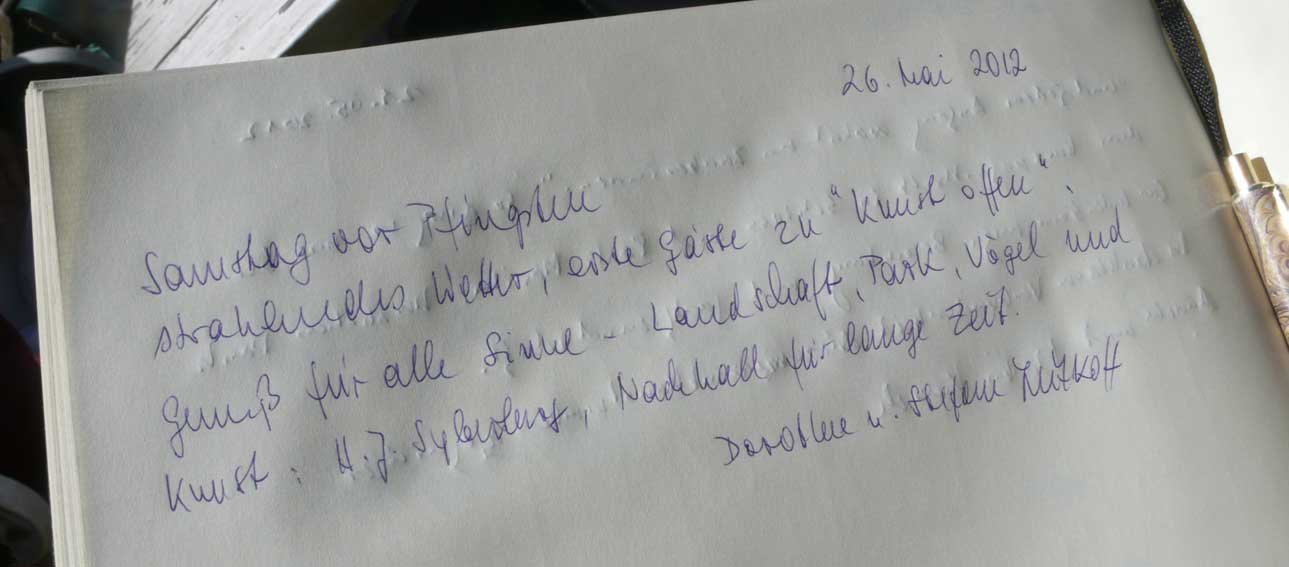 26. Mai 2012
Samstag vor Pfingsten
strahlendes Wetter, erste Gäste zu "Kunst offen".
Genuß für alle Sinne - Landschaft, Park, Vögel und
Kunst: H.J. Syberberg, Nachhall für lange Zeit.
Dorothee u. Stefan